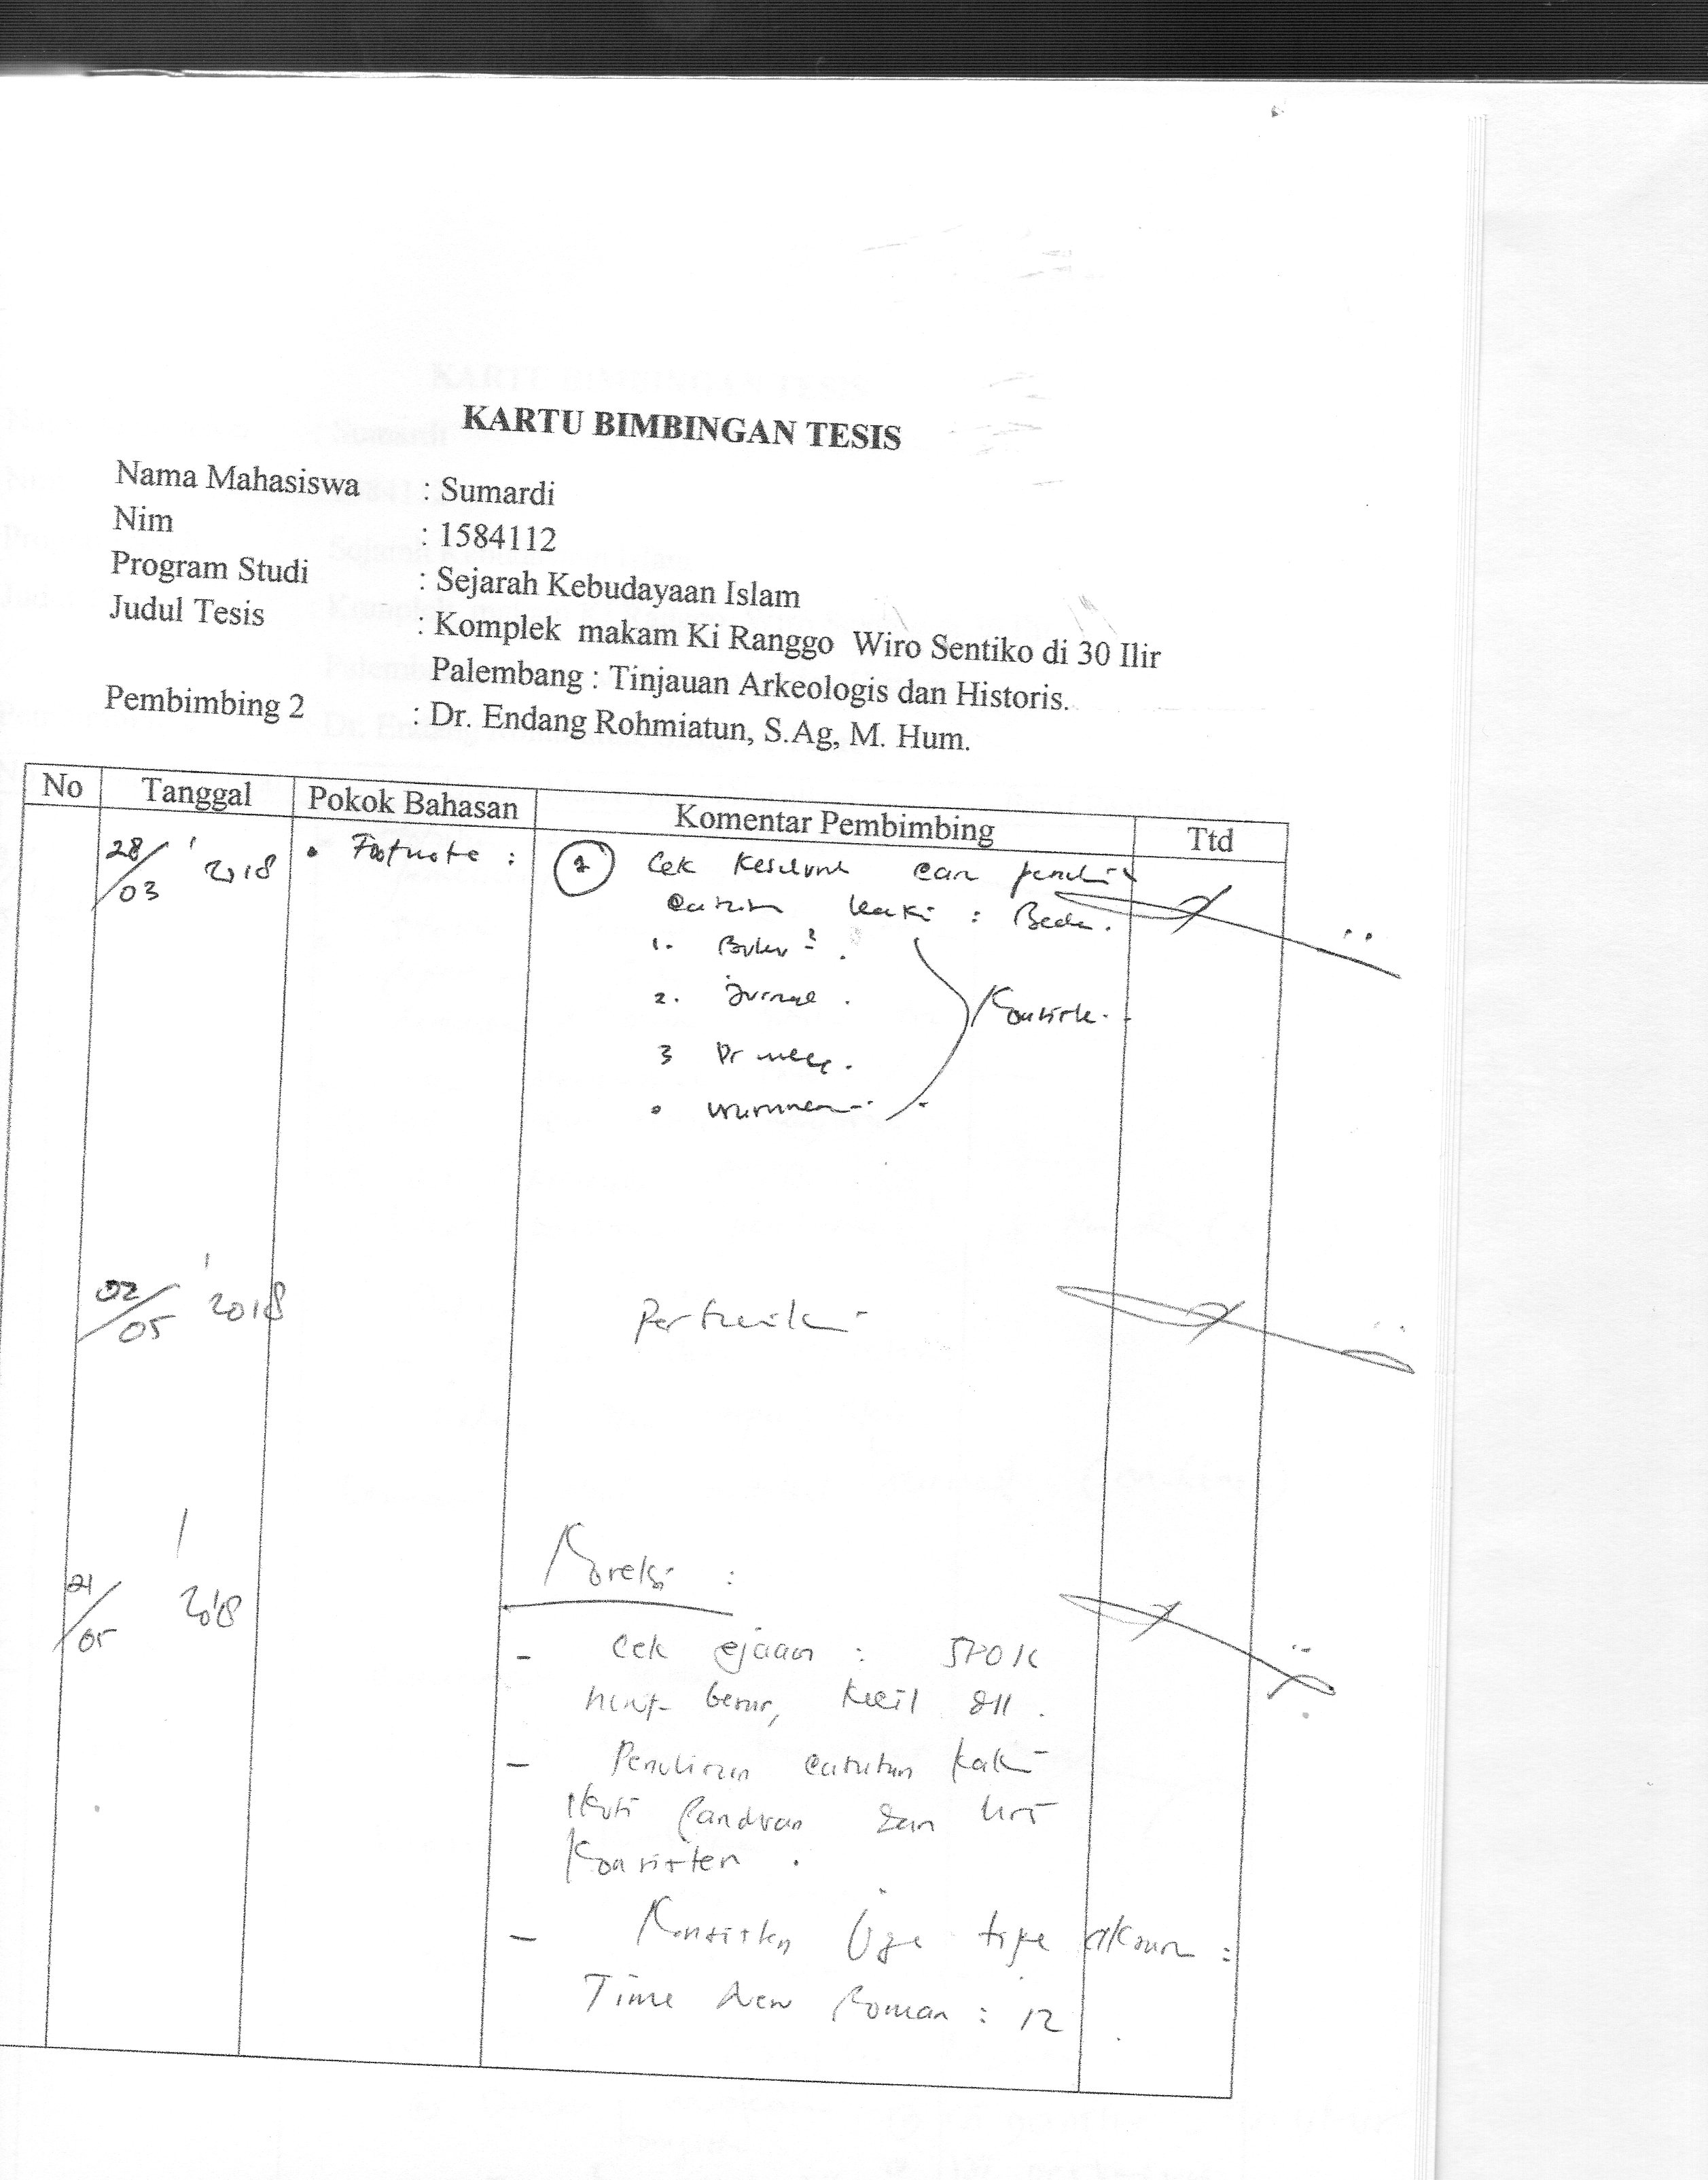 KARTU BIMBINGAN TESIS
Nama Mahasiswa : Sumardi
Nim : 1584112
Program Studi : Sejarah Kebudayaan Islam
Judul Tesis : Komplek makam Ki Ranggo Wiro Sentiko di 30 Ilir
Palembang : Tinjauan Arkeologis dan Historis.
Pembimbing 2 : Dr. Endang Rohmiatun, S.Ag, M. Hum.
No Tanggal Pokok Bahasan Komentar Pembimbing Ttd
28/03 ' 2018 • Footnote : Cek
kaki : Beda.
1.
2. Jurnal .
3
•
02/05 ' 2018 Perbaiki
21/05 ' 2018 Koreksi :
- Cek ejaan : SPOK
huruf besar, kecil dll .
- Penulisan catatan kaki
ikuti panduan dan
Konsisten .
- Konsisten tipe :
Time New Roman : 12